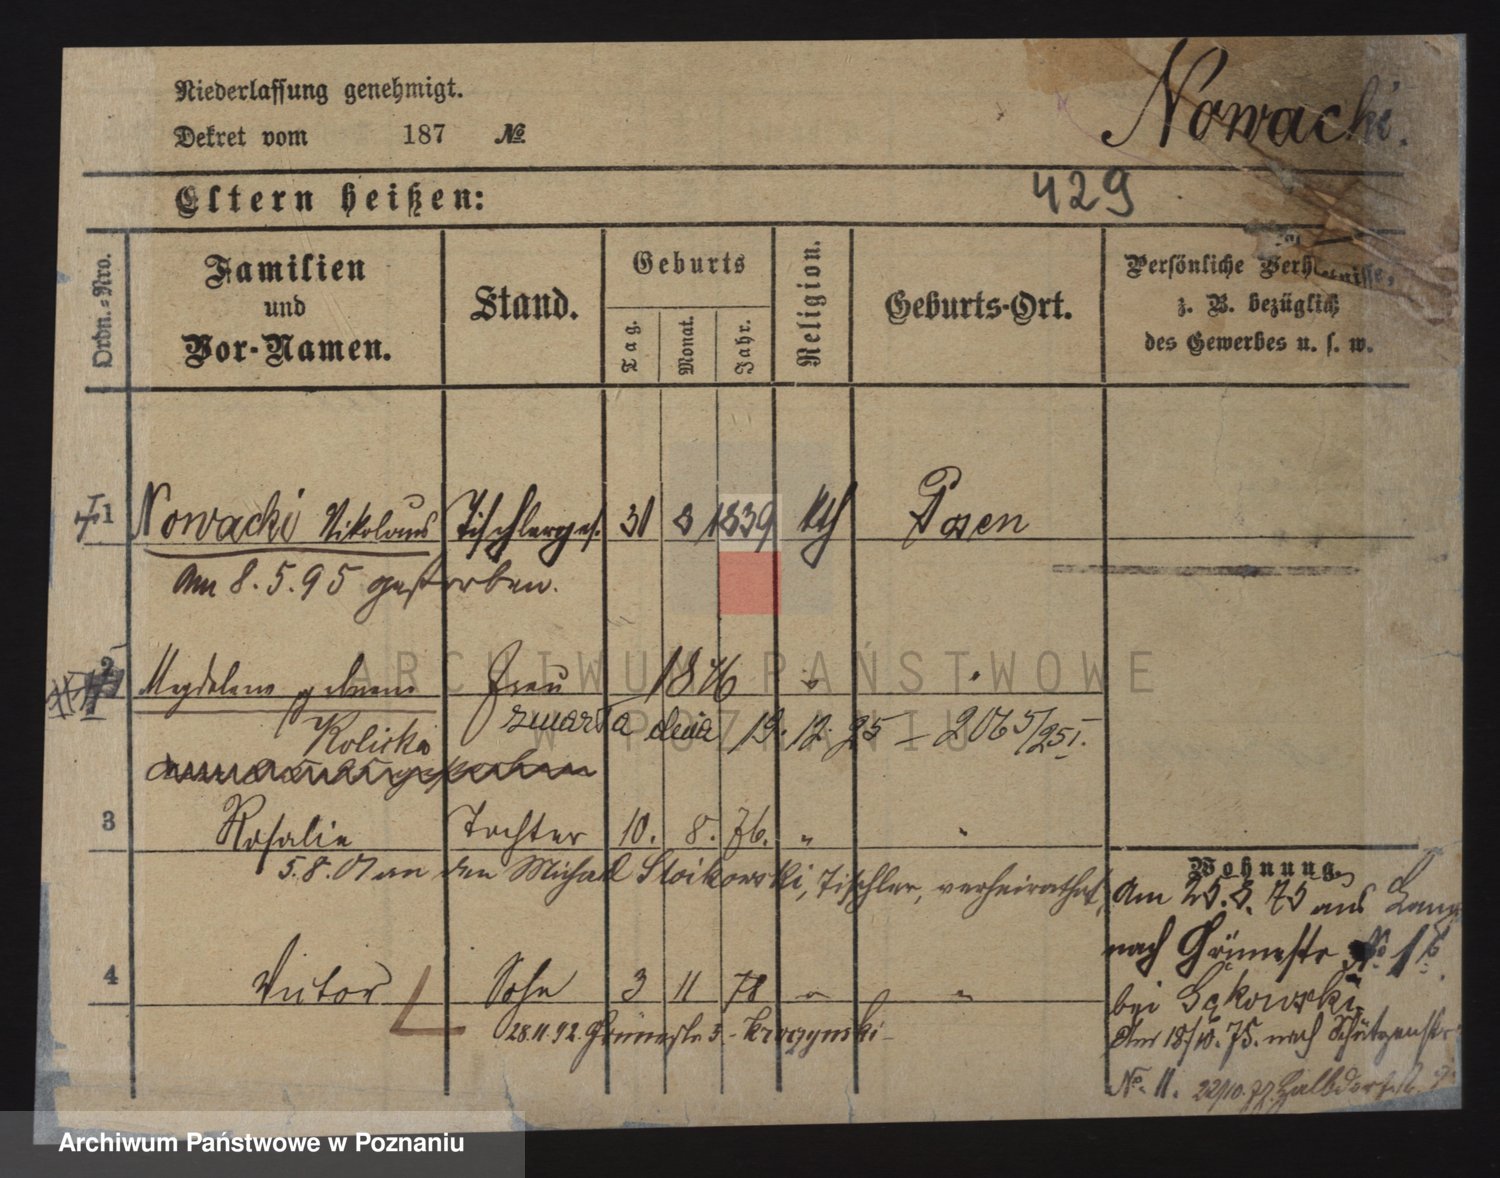 Niederlassung genehmigt.
Nowacki.
Dekret vom 187 №
Eltern heißen:
429
Ordn.=Nro.
Familien
und
Vor-Namen.
Stand.
Geburts
Tag.
Monat.
Jahr.
Religion.
Geburts-Ort.
Persönliche Verhältnisse,
z. B. bezüglich
des Gewerbes u. s. w.
1 Nowacki Nikolaus Tischlerges. 31 8 1839 kth Posen
Am 8.5.95 gestorben.
2 Magdalena geborene Frau 1846 " "
Kolicka zmarła dnia 19.12.25 – 2065/25 I.
3 Rosalie Tochter 10. 8. 76. " "
5.8.01 an den Michael Stoikowski, Tischler, verheirathet,
4 Victor Sohn 3 11 78 " "
28.11.92. Grünestr 3. - Kroczynski -
Wohnung.
Am 25.8.75 aus
nach Grünestr No 1
bei Gąkowski
Am 18/10.75. nach Schützenstr
No. 11. 22/10.77 Halbdorfstr.
ARCHIWUM PAŃSTWOWE
W POZNANIU
Archiwum Państwowe w Poznaniu